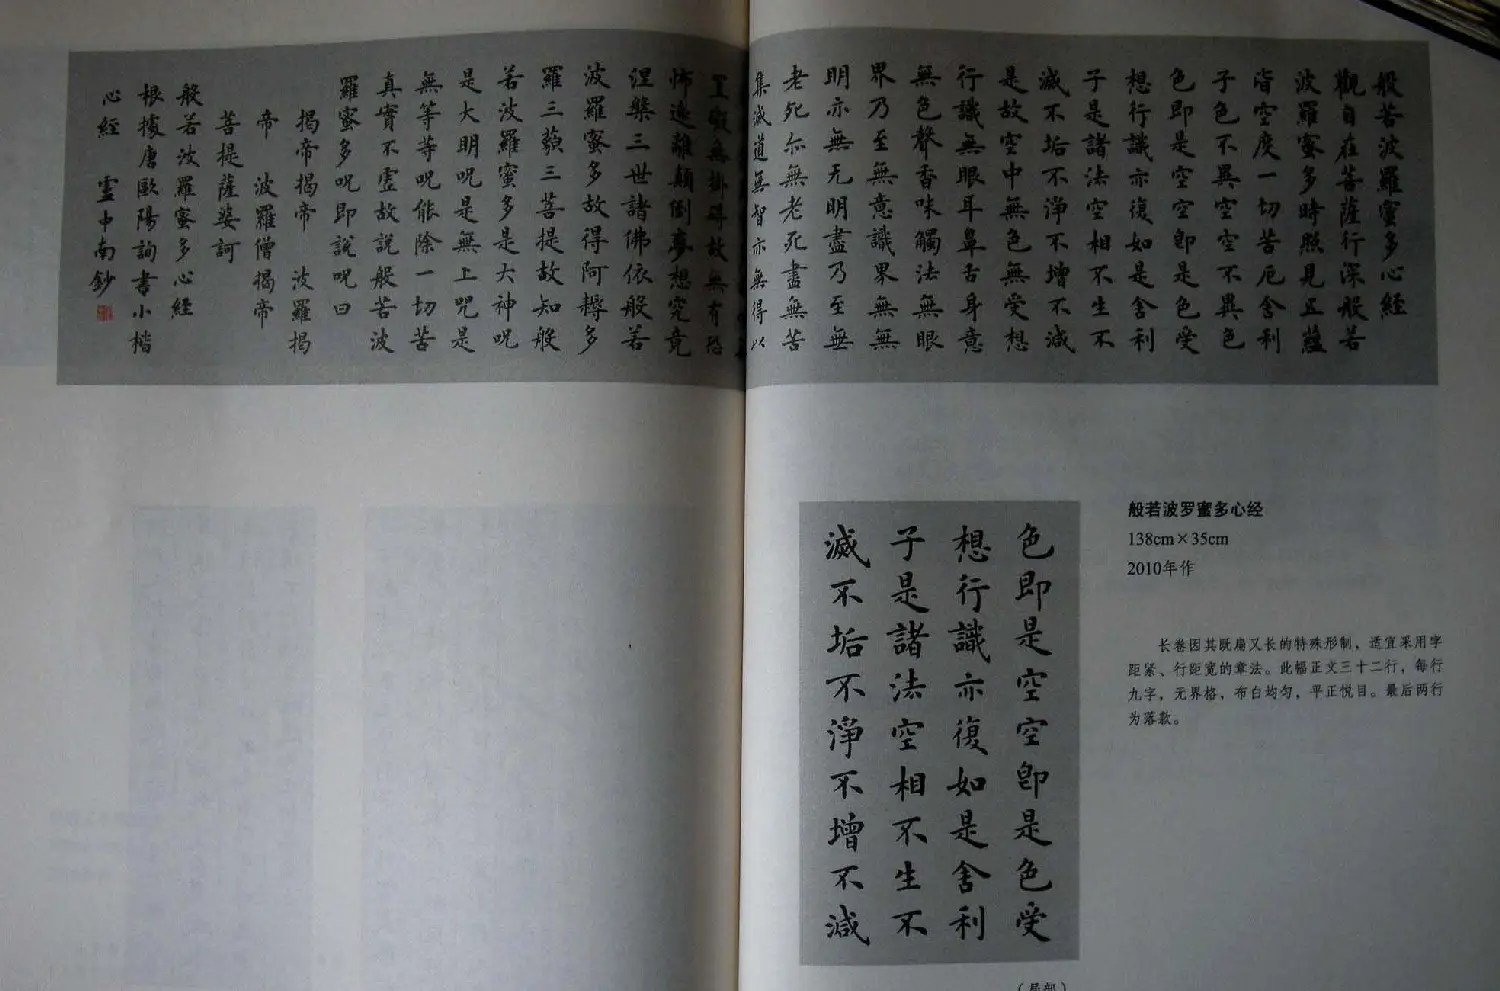 般若波羅蜜多心經
觀自在菩薩行深般若
波羅蜜多時照見五蘊
皆空度一切苦厄舍利
子色不異空空不異色
色即是空空即是色受
想行識亦復如是舍利
子是諸法空相不生不
滅不垢不淨不增不減
是故空中無色無受想
行識無眼耳鼻舌身意
無色聲香味觸法無眼
界乃至無意識界無無
明亦無无明盡乃至無
老死亦無老死盡無苦
集滅道無智亦無得以
罣礙無掛碍故無有恐
怖遠離顛倒夢想究竟
涅槃三世諸佛依般若
波羅蜜多故得阿耨多
羅三藐三菩提故知般
若波羅蜜多是大神呪
是大明呪是無上咒是
無等等呪能除一切苦
真實不虛故說般若波
羅蜜多呪即說呪曰
揭帝揭帝 波羅揭
帝 波羅僧揭帝
菩提薩婆訶
般若波羅蜜多心經
根據唐歐陽詢書小楷
心經 中南鈔
色即是空空即是色受
想行識亦復如是舍利
子是諸法空相不生不
滅不垢不淨不增不減
般若波罗蜜多心经
138cm×35cm
2010年作
长卷因其既扁又长的特殊形制，适宜采用字
距紧、行距宽的章法。此幅正文三十二行，每行
九字，无界格，布白均匀，平正悦目。最后两行
为落款。
（局部）